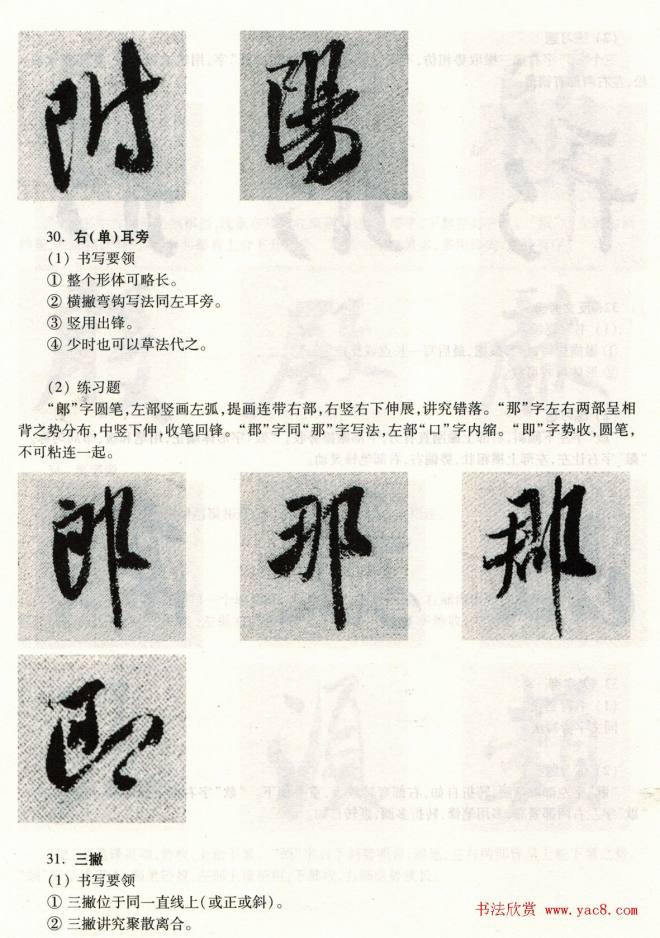 附 陽
30. 右(单)耳旁
(1) 书写要领
① 整个形体可略长。
② 横撇弯钩写法同左耳旁。
③ 竖用出锋。
④ 少时也可以草法代之。
(2) 练习题
“郎”字圆笔,左部竖画左弧,提画连带右部,右竖右下伸展,讲究错落。“那”字左右两部呈相
背之势分布,中竖下伸,收笔回锋。“郡”字同“那”字写法,左部“口”字内缩。“即”字势收,圆笔,
不可粘连一起。
郎 那 郡
即
31. 三撇
(1) 书写要领
① 三撇位于同一直线上(或正或斜)。
② 三撇讲究聚散离合。
书法欣赏 www.yac8.com